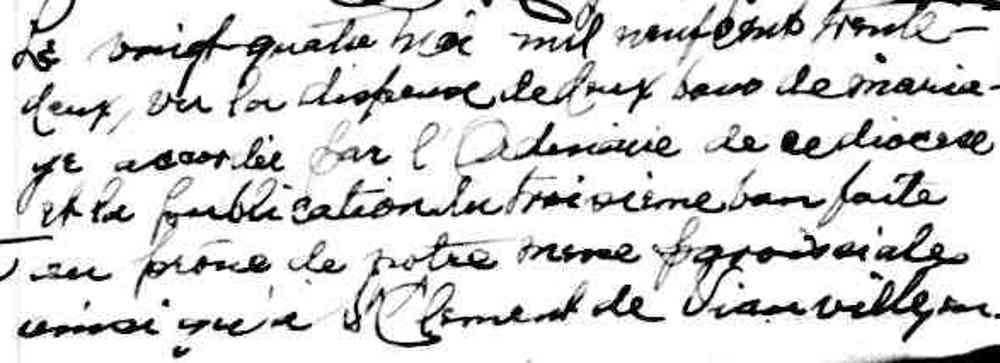 Le vingt-quatre Mai mil neuf cent trente-
deux, vu la dispense de deux bans de maria-
ge accordée par l'Ordinaire de ce diocèse
et la publication du troisième ban faite
au prône de notre messe paroissiale
ainsi qu'à St Clément de Viauville,